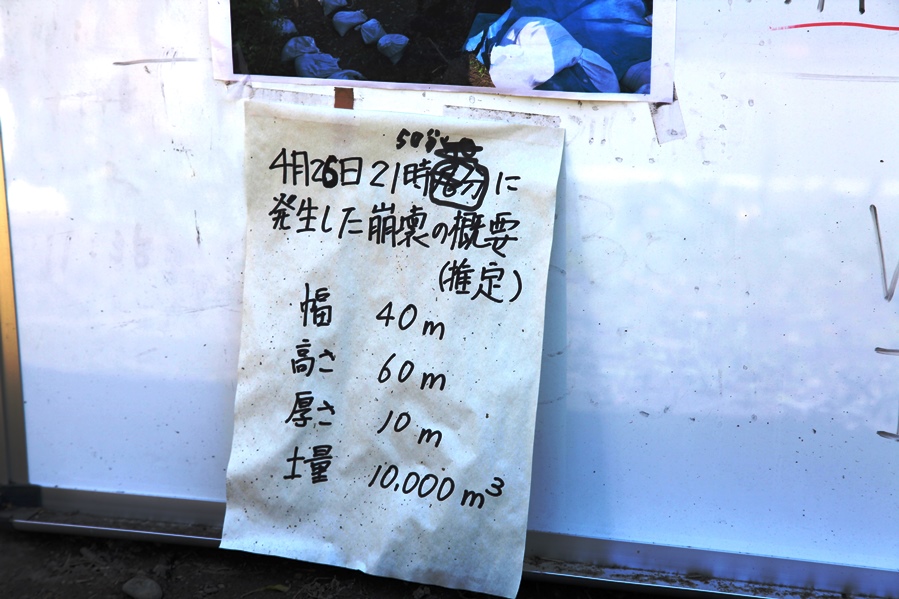 50分
4月26日 21時 分に
発生した崩壊の概要
(推定)
幅 40m
高さ 60m
厚さ 10m
土量 10,000m³